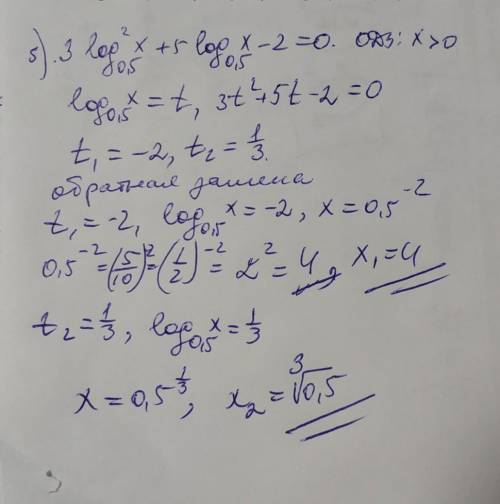 5). 3 log²₀,₅ x + 5 log₀,₅ x - 2 = 0. ОДЗ: x > 0
log₀,₅ x = t, 3t² + 5t - 2 = 0
t₁ = -2, t₂ = 1/3.
обратная замена
t₁ = -2, log₀,₅ x = -2, x = 0,5⁻²
0,5⁻² = (5/10)⁻² = (1/2)⁻² = 2² = 4, x₁ = 4
t₂ = 1/3, log₀,₅ x = 1/3
x = 0,5^(1/3), x₂ = ∛0,5